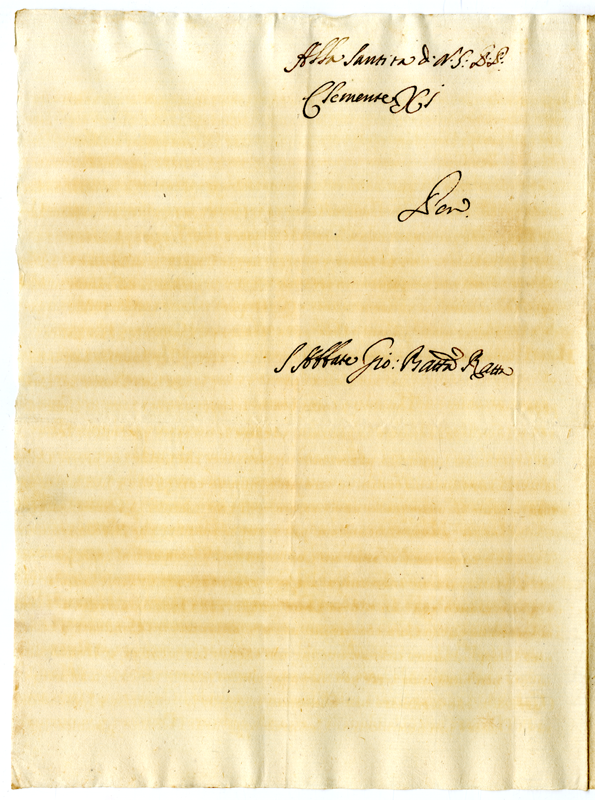 Alla Santità di N: S: P.P.
Clemente XI
Per
L'Abbate Gio: Batta Ratta